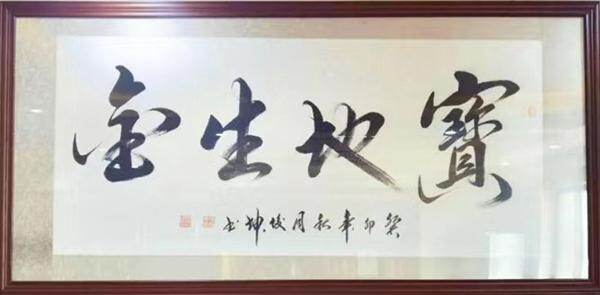 寶地生金
癸卯年秋月俊坤书